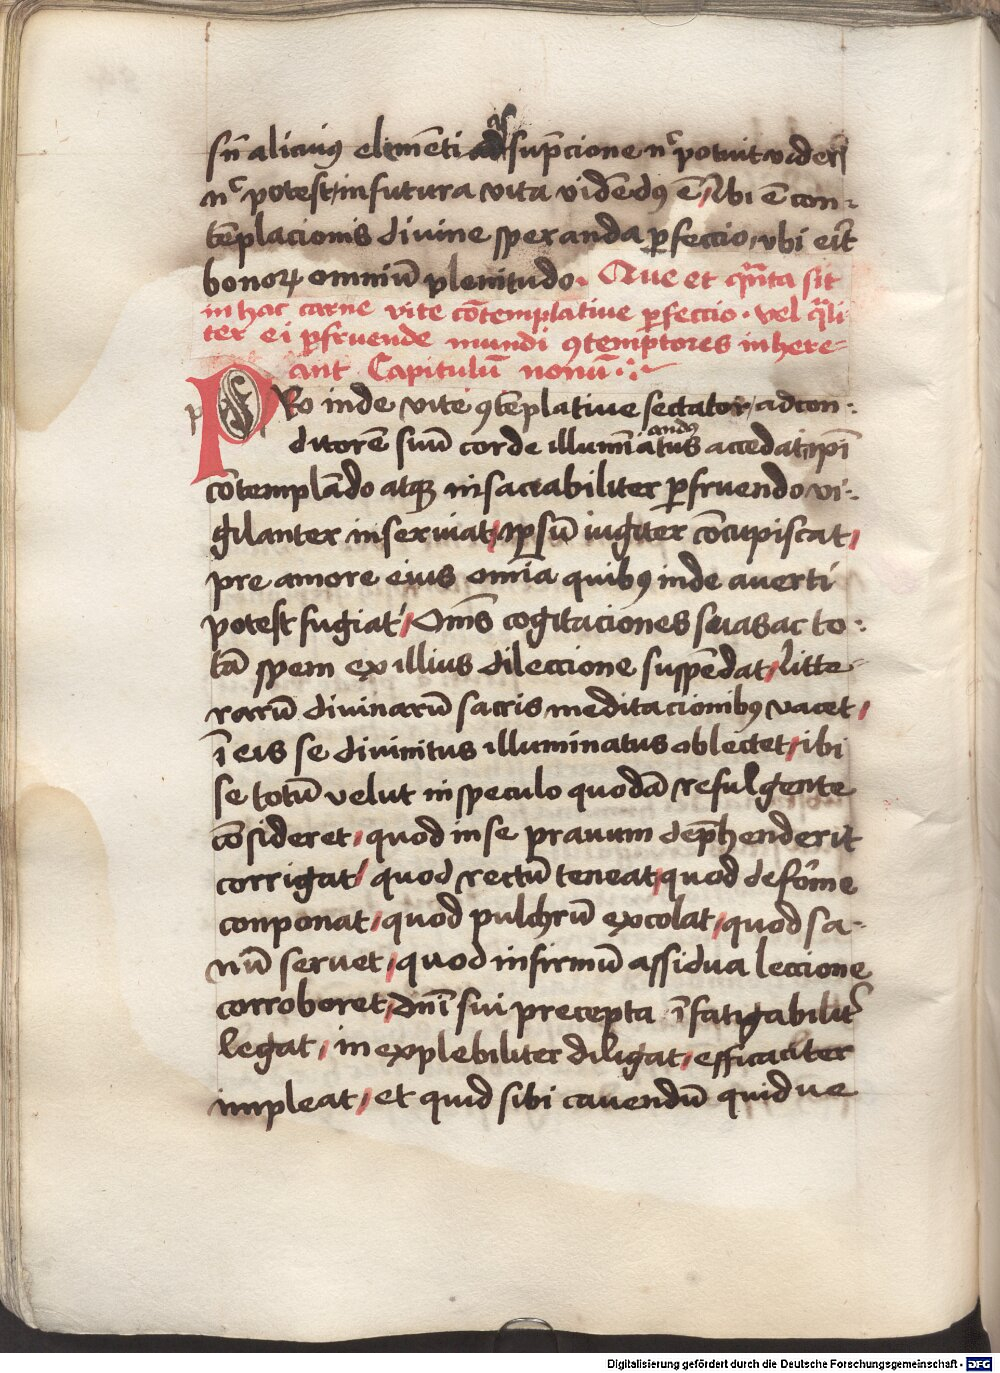 sn̄ alicuiꝰ elemēti adsūpcione nᶜ potuit videri
nᶜ potest, in futura vita vidēdꝰ ē, Ubi ē con-
tēplacionis divine speranda ꝑfeccio, vbi erit
bonoꝝ omniū plenitudo. Que et qn̄ta sit
in hac carne vite cōtemplative ꝑfeccio. vel qͣli
ter ei ꝑfruende mundi ꝯtemptores inhere-
ant Capitulū nonū
PRo inde vite ꝯtēplative sectator, ad con-
ditorē suū corde illumīatus andus accedat, ipī
cōtemplādo atqꝫ insaciabiliter ꝑfruendo vi-
gilanter inserviat, ipsū iugiter cōcupiscat,
pre amore eius om̄ia quibꝰ inde averti
potest fugiat, Om̄s cogitaciones suas ac to-
tā spem ex illius dileccione suspēdat, litte-
rarū divinarū sacris meditacionibꝰ vacet,
ī eis se divinitus illuminatus oblectet, ibi
se totū velut in speculo quodā refulgente
cōsideret, quod in se pravum dep̄henderit
corrigat, quod rectū teneat, quod defōrme
conponat, quod pulchrū excolat, quod sa-
nū servet, quod infirmū assidua leccione
corroboret, dn̄i sui precepta īfatigabilit͛
legat, inexplebiliter diligat, efficaciter
impleat, et quid sibi cavendū quid ve
Digitalisierung gefördert durch die Deutsche Forschungsgemeinschaft - DFG